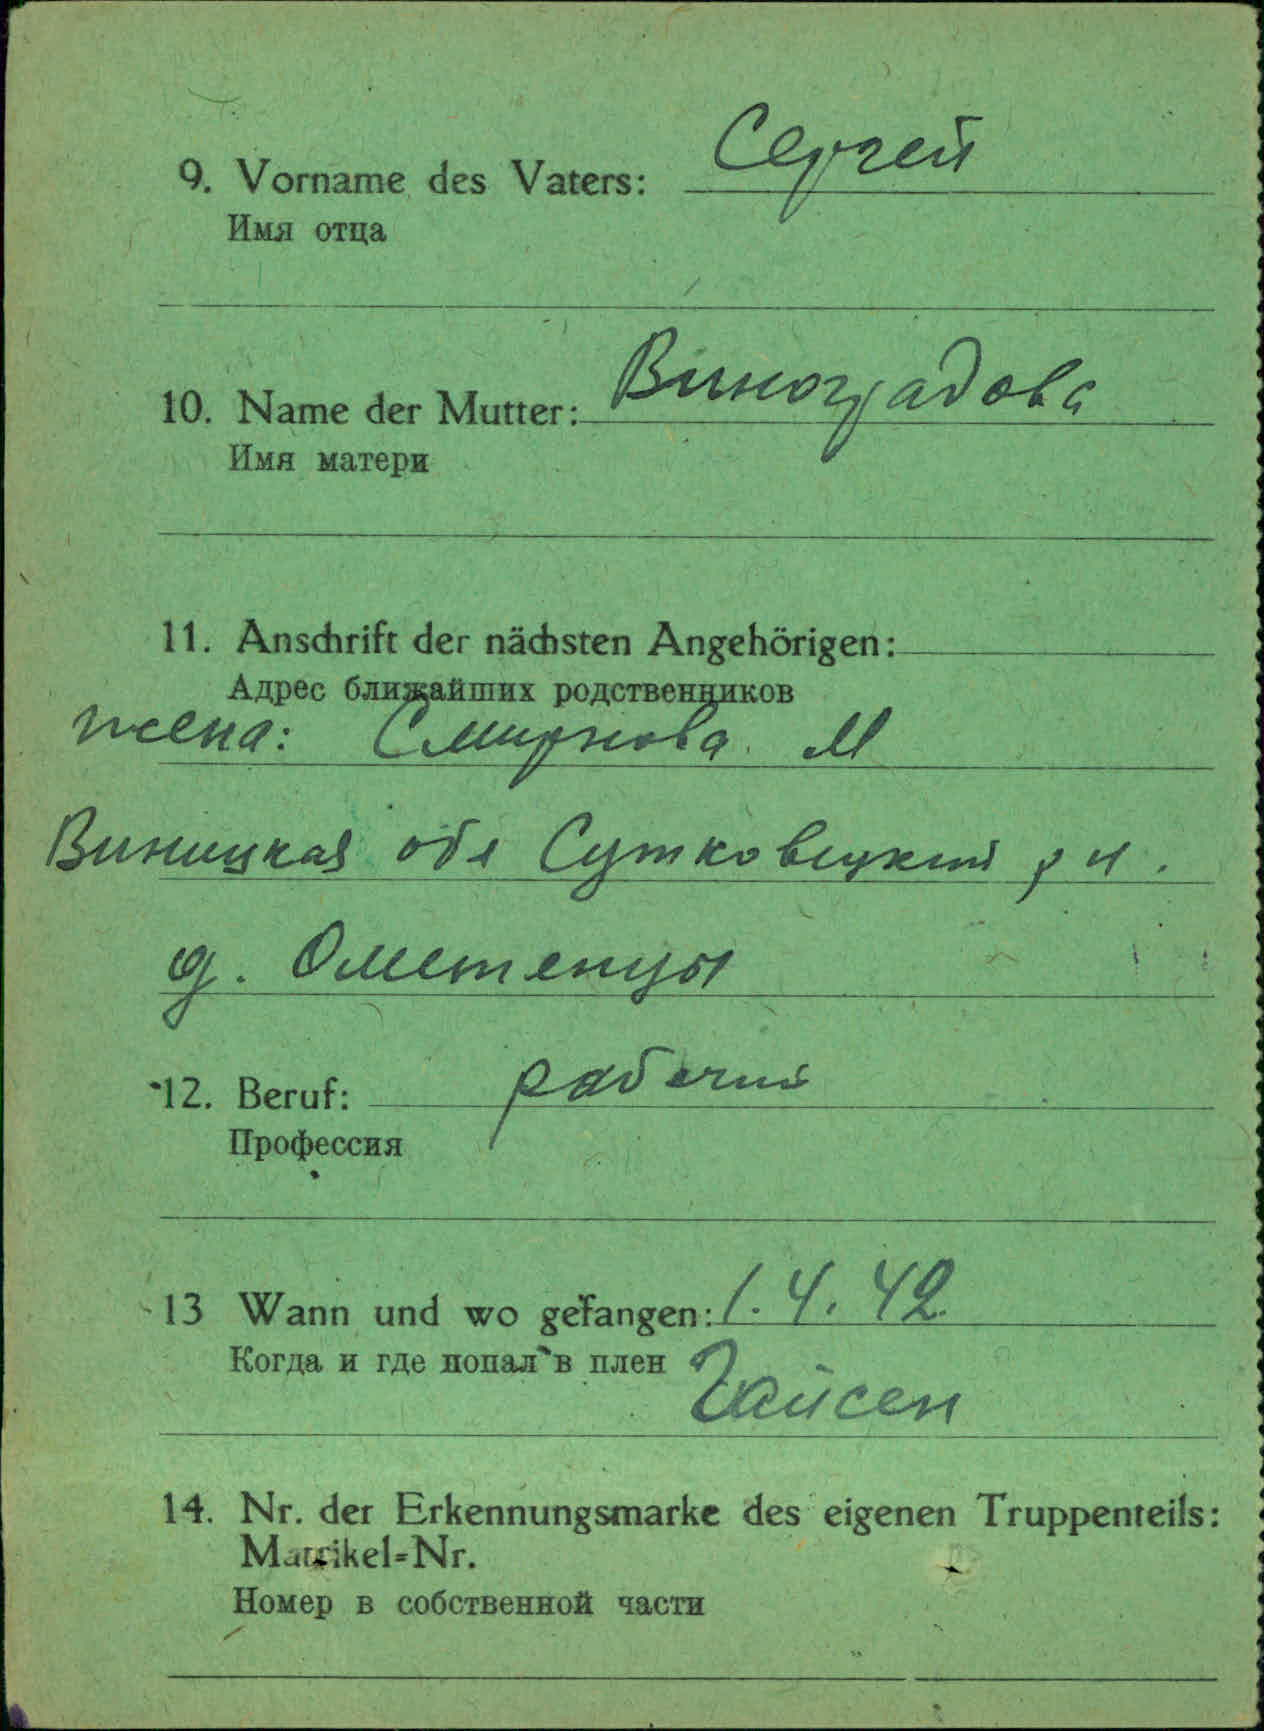 9. Vorname des Vaters: Сергей
Имя отца
10. Name der Mutter: Виноградова
Имя матери
11. Anschrift der nächsten Angehörigen:
Адрес ближайших родственников
жена: Смирнова М
Виницкая обл Сутковецкий р н.
д. Ометенцы
12. Beruf: рабочий
Профессия
13 Wann und wo gefangen: 1. 4. 42
Когда и где попал в плен Гайсен
14. Nr. der Erkennungsmarke des eigenen Truppenteils:
Matrikel=Nr.
Номер в собственной части